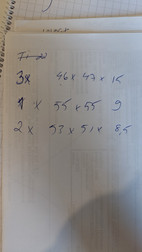 3x 46 x 47 x 15
1 x 55 x 55 9
2 x 57 x 51 x 8,5